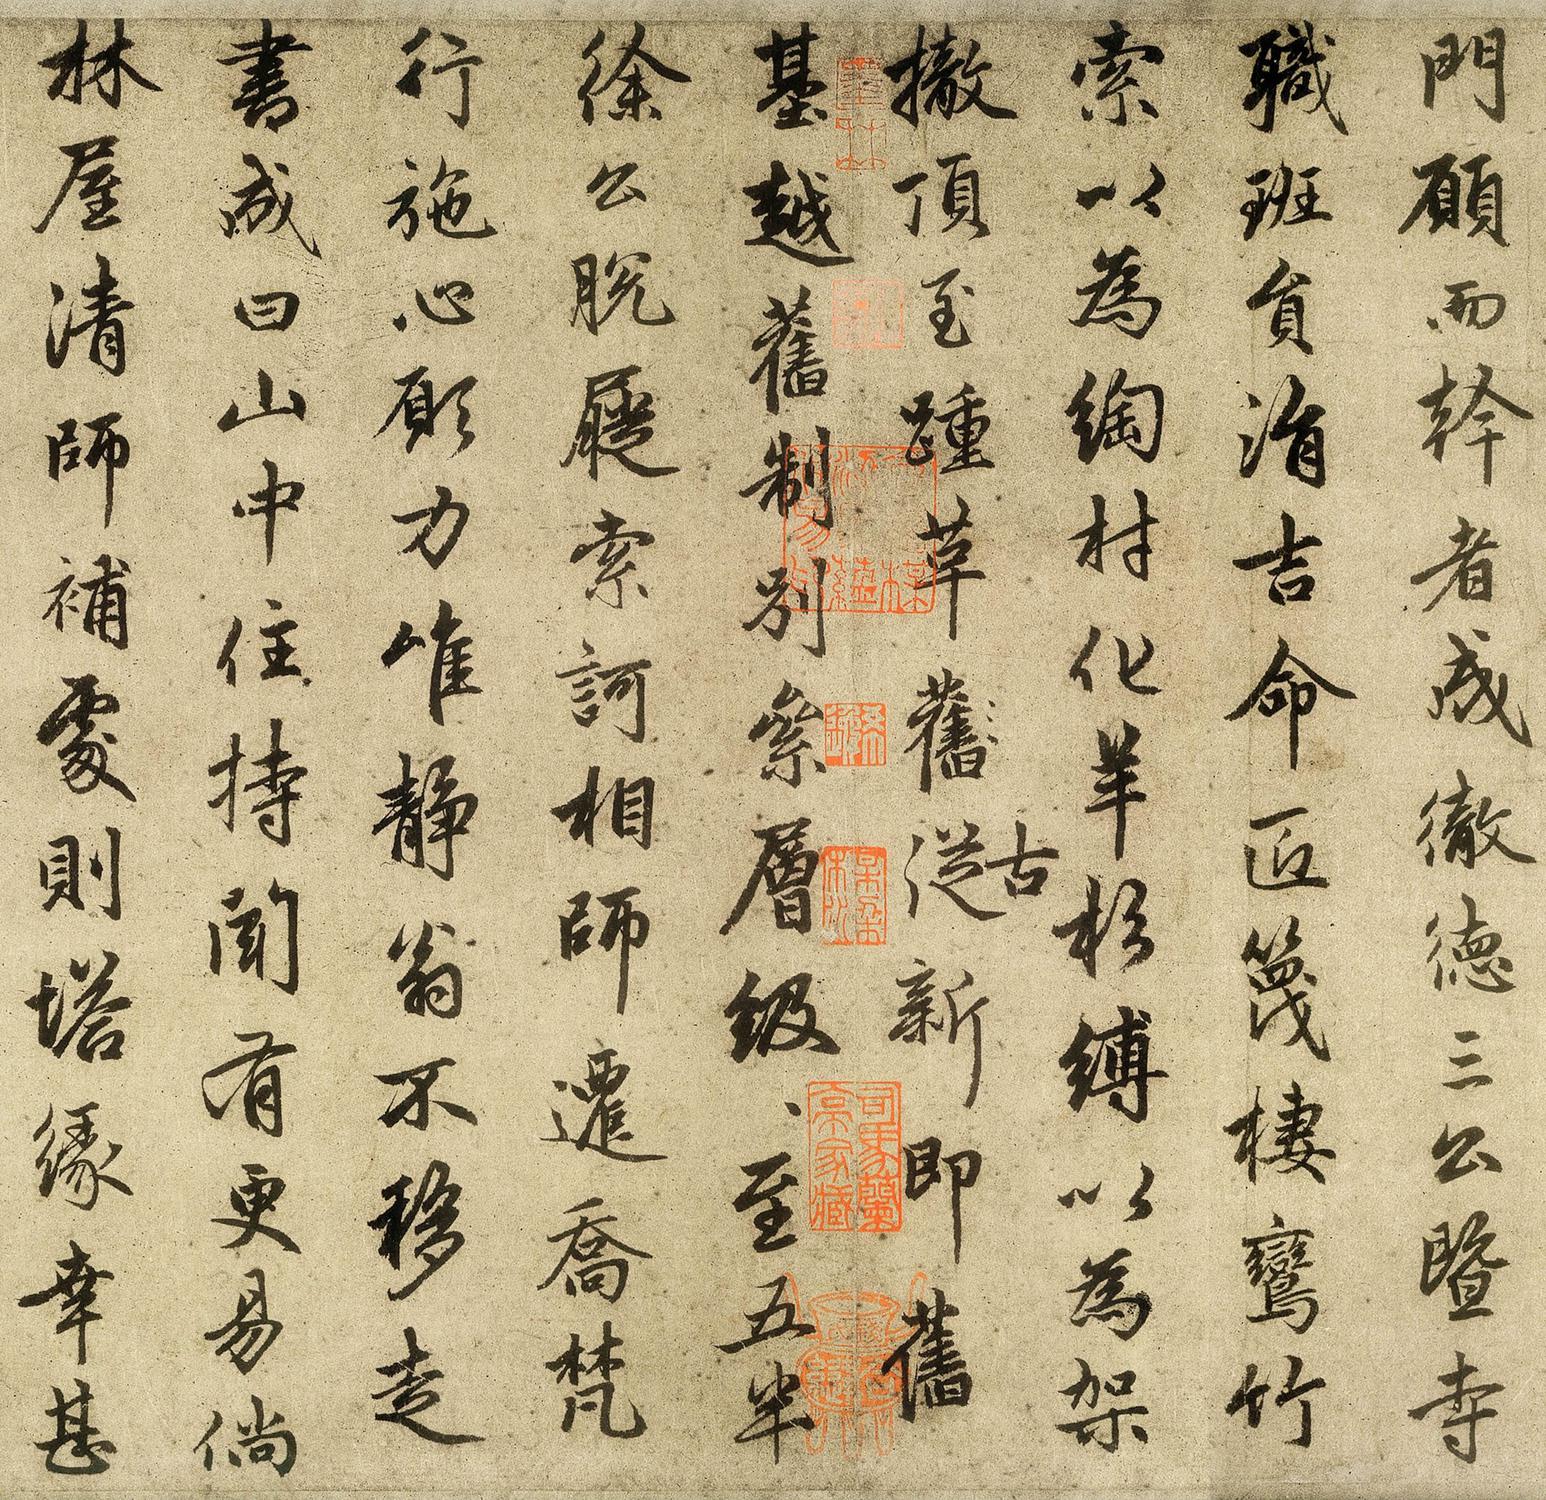 門願而幹者成徹德三公暨寺
職班負滑吉命匠篾棲鸞竹
索以為綯村化羊杉縛以為架
撤頂至踵草舊從古新即舊
基越舊制別絫層級、至五半
徐公脫屣索訶相師遷喬梵
行施心願力唯靜翁不移志
書成曰山中住持閑有更易倘
林屋清師補處則塔緣幸甚